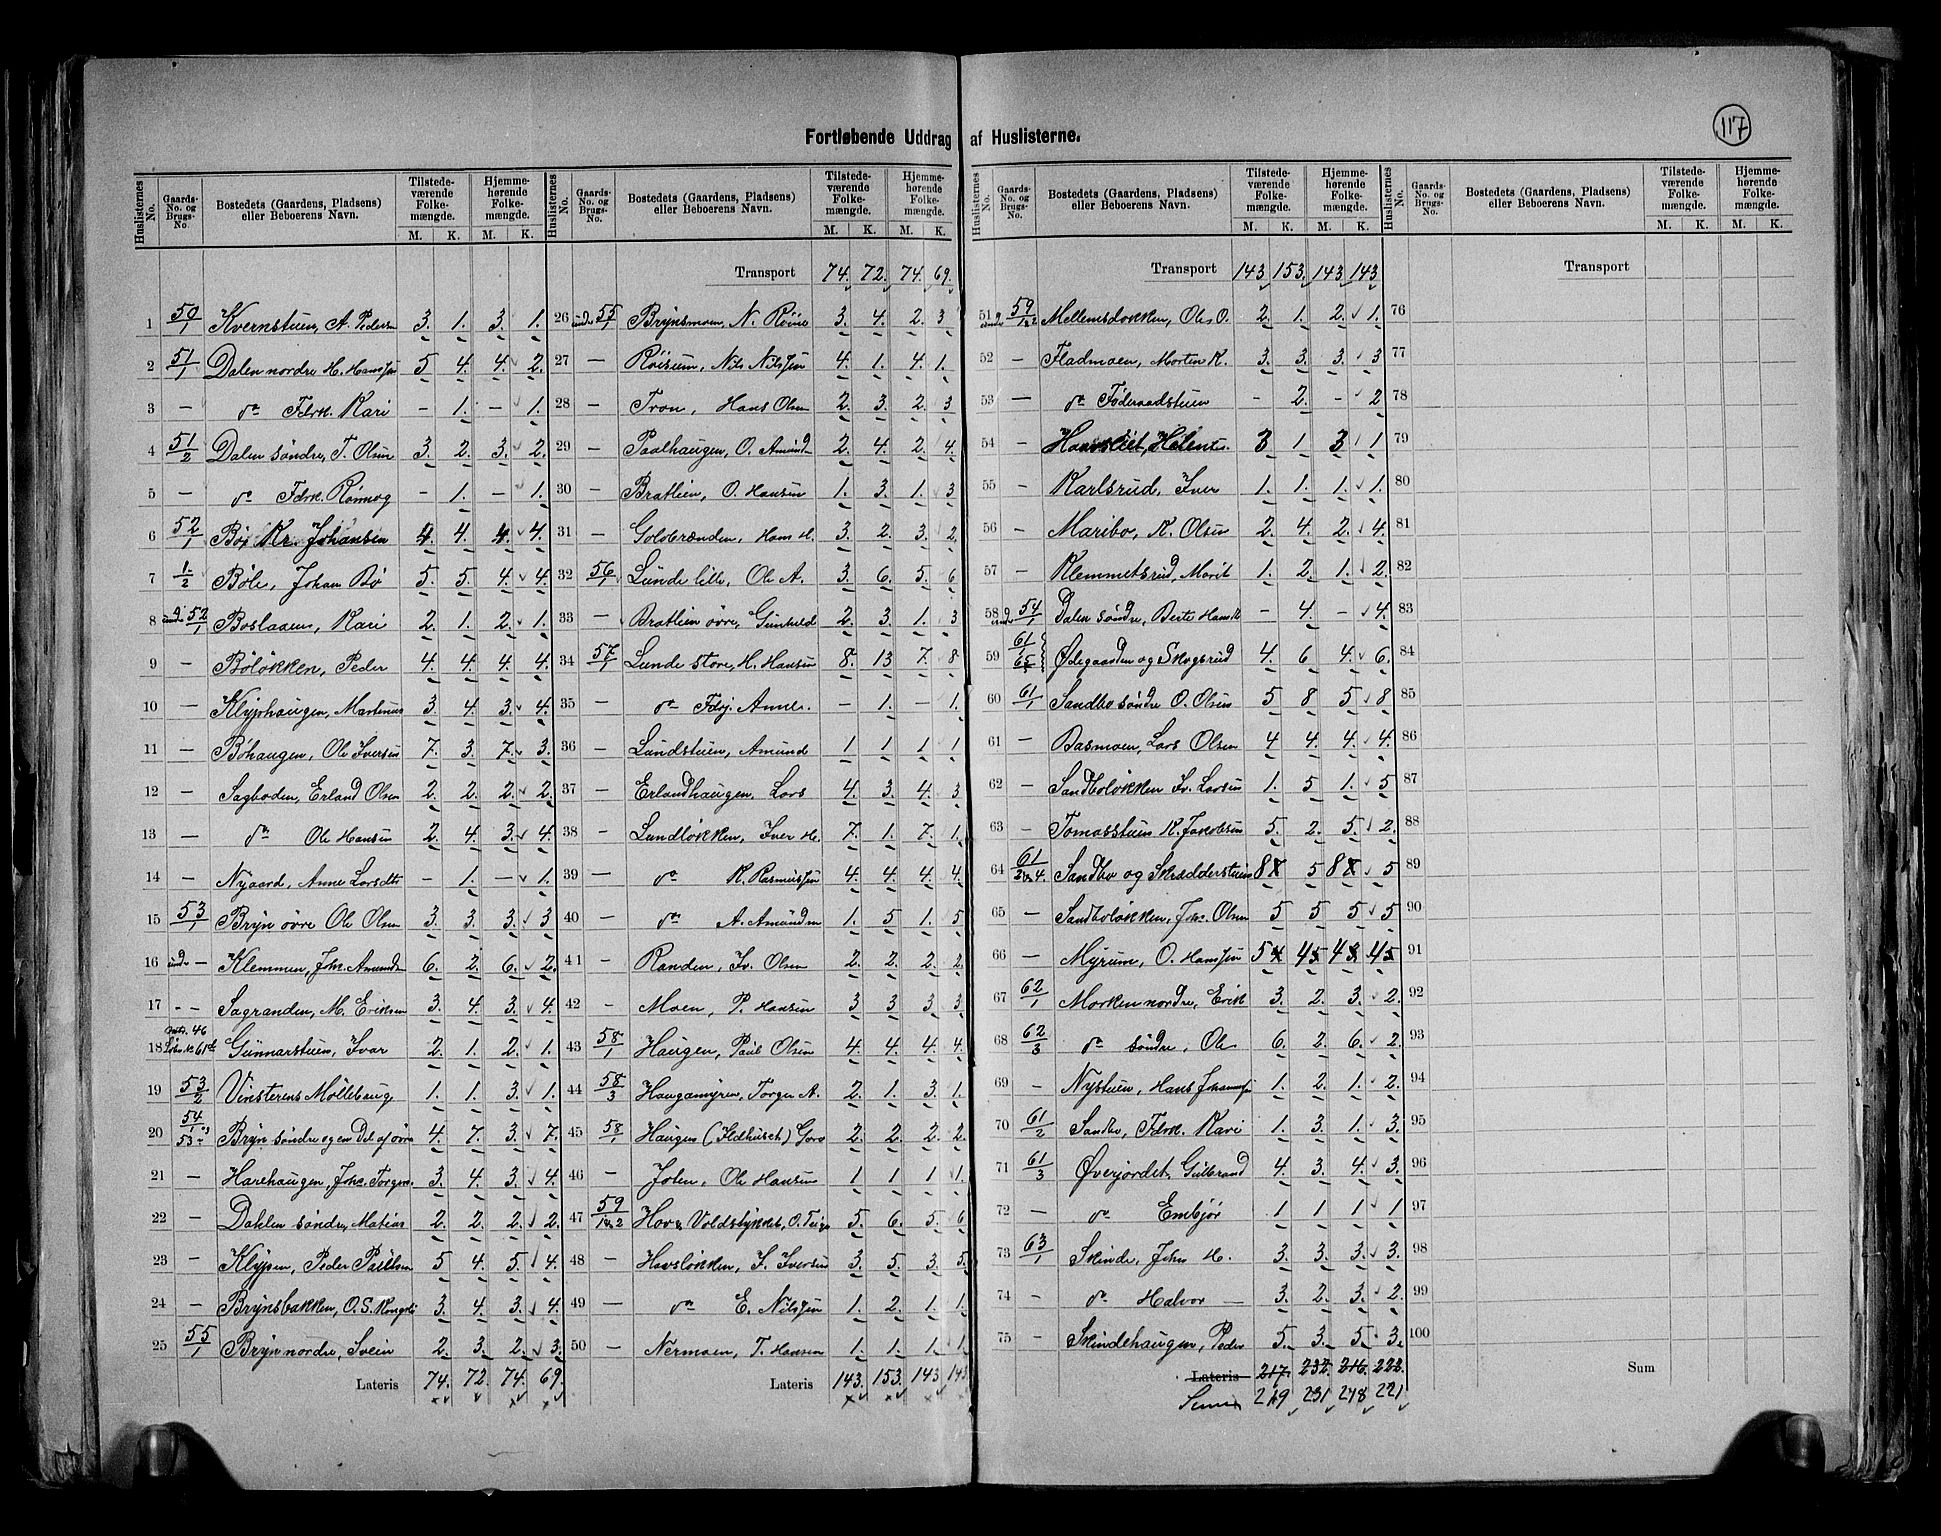 117
Fortløbende Uddrag af Huslisterne.
Huslisternes No. Gaards-No. og Brugs-No. Bostedets (Gaardens, Pladsens) eller Beboerens Navn. Tilstedeværende Folkemængde. M. K. Hjemmehørende Folkemængde. M. K.
1 50/1 Kvernstuen, A. Peders 3. 1. 3. 1.
2 51/1 Dalen nordre H. Hansen 5 4. 4. 2.
3 — do Fdrk. Kari - 1. — 1.
4 51/2 Dalen søndre, T. Olsen 3. 2. 3. 2.
5 — do Fdrk. Rønnog - 1. — 1.
6 52/1 Bø, Kr. Johansen 4. 4. 4. 4.
7 1/2 Bøle, Johan Bø 5. 5. 4. 4.
8 under 52/1 Boslaaen, Kari 2. 1. 2. 1.
9 - Bøløkken, Peder 4. 4. 4. 4.
10 — Klyphaugen, Martinus 3. 4. 3. 4.
11 — Bøhaugen, Ole Iversen 7. 3. 7. 3.
12 — Sagboden, Erland Olsen 2. 2. 2. 2.
13 — do Ole Hansen 2. 4. 3. 4.
14 — Nygard, Anne Larsdtr - 1. — 1.
15 53/1 Bryn øvre Ole Olsen 3. 3. 3. 3
16 under — Klemmen, Joh. Amunds 6. 2. 6. 2.
17 - - Sagranden, M. Eriksen 3. 4. 3. 4.
18 Gunnarstuen, Ivar 2. 1. 2. 1.
19 53/2 Vinsterens Møllebrug 1. 1. 3. 1.
20 54/1 53 Bryn søndre og en Del af øvre 4. 7. 3. 7.
21 — Harehaugen, Joh. Torgers. 3. 4. 3. 4.
22 — Dahlen søndre, Matias 2. 2. 2. 2.
23 - Klypen, Peder Paulsen 5 4. 5. 4.
24 - Brynsbakken, O. S. 3. 4. 3. 4.
25 55/1 Bryn nordre, Svein 2. 3. 2. 3.
Lateris 74. 72. 74. 69.
Huslisternes No. Gaards-No. og Brugs-No. Bostedets (Gaardens, Pladsens) eller Beboerens Navn. Tilstedeværende Folkemængde. M. K. Hjemmehørende Folkemængde. M. K.
Transport 74. 72. 74. 69.
26 under 55/1 Brynsmoen, N. 3. 4. 2. 3
27 — Røisum, Nils Nilssen 4. 1. 4. 1.
28 — Tron, Hans Olsen 2. 3. 2. 3
29 — Paalhaugen, O. Amund 2. 4. 2. 4.
30 — Bratlien, O. Hansen 1. 3. 1. 3
31 — Golobrænden, Hans H. 3. 2. 3. 2.
32 56/1 Lunde lille, Ole A. 3. 6. 5. 6
33 — Bratlien øvre, Gunhild 2. 3. 1. 3
34 57/1 Lunde store, H. Hansen 8. 13 7. 8
35 — do Fdrj. Anne. - 1. — 1.
36 — Lundstuen, Amund 1 1 1 1
37 — Erlandhaugen, Lars 4. 3. 4. 3
38 — Lundløkken, Iver H. 7. 1. 7. 1.
39 — do K. Rasmussen 4. 4. 4. 4.
40 — do A. Amunden 1. 5 1. 5
41 — Randen, Iv. Olsen 2. 2. 2. 2.
42 - Moen, P. Hansen 3 3 3 3
43 58/1 Haugen, Paul Olsen 4. 4. 4. 4.
44 58/3 Haugamyren, Torger A. 2. 1. 3. 1.
45 58/1 Haugen (Ildhuset) Goro 2. 2. 2. 2.
46 — Joten, Ole Hansen 1 1 1 1.
47 59/1&2 Hov & Voldstykket, O. 5. 6. 5. 6
48 — Hovsløkken, I. Iversen 3. 5. 3. 5.
49 — do E. Nilssen 1. 2. 1. 1.
50 — Nermoen, T. Hansen 1. 1. 1. 1
Lateris 143. 153. 143 143
Huslisternes No. Gaards-No. og Brugs-No. Bostedets (Gaardens, Pladsens) eller Beboerens Navn. Tilstedeværende Folkemængde. M. K. Hjemmehørende Folkemængde. M. K.
Transport 143 153. 143. 143
51 under 59/1&2 Mellemsdokken, Ole O. 2. 1. 2. 1.
52 — Fladmoen, Morten K. 3. 3. 3. 3
53 — do Føderaadstuen - 2. - 2
54 — Helene 3 1 3 1
55 — Karlsrud, Iver 1. 1. 1. 1.
56 — Maribo, K. Olsen 2. 4. 2. 4.
57 — Klemmetsrud, Marit 1. 2. 1. 2.
58 under 54/1 Dalen søndre, Berte Hansdtr - 4. - 4.
59 61/65 Ødegaarden og Skogsrud 4. 6 4. 6.
60 61/1 Sandbo søndre O. Olsen 5 8 5 8
61 — Basmoen, Lars Olsen 4 4. 4. 4.
62 — Sandboløkken Iv. Larsen 1. 5 1. 5
63 — Tomasstuen K. Jakobsen 5. 2. 5. 2.
64 61/2&4. Sandbo og Skrædderstuen 8 5 8 5
65 — Sandboløkken, Joh. Olsen 5 5 5 5
66 — Myrum, O. Hanssen 5 4 4 4
67 62/1 Morken nordre, Erik 3. 2. 3. 2.
68 62/3 do søndre, Ole 6. 2. 6. 2.
69 — Nystuen, Hans Johannesen 1. 2. 1. 2.
70 61/2 Sandbo, Fdrk. Kari 1. 3. 1. 3.
71 61/3 Øverjordet, Gulbrand 4. 3. 4. 3.
72 — do Embjør 1 1 1 1
73 63/1 Skinde, John H. 3. 3. 3. 3.
74 — do Halvor 3. 2. 3. 2.
75 — Skindehaugen, Peder 5. 3. 5. 3.
Lateris 217. 232. 216. 222.
Summa 219 231 218 221
Huslisternes No. Gaards-No. og Brugs-No. Bostedets (Gaardens, Pladsens) eller Beboerens Navn. Tilstedeværende Folkemængde. M. K. Hjemmehørende Folkemængde. M. K.
Transport
76
77
78
79
80
81
82
83
84
85
86
87
88
89
90
91
92
93
94
95
96
97
98
99
100
Sum